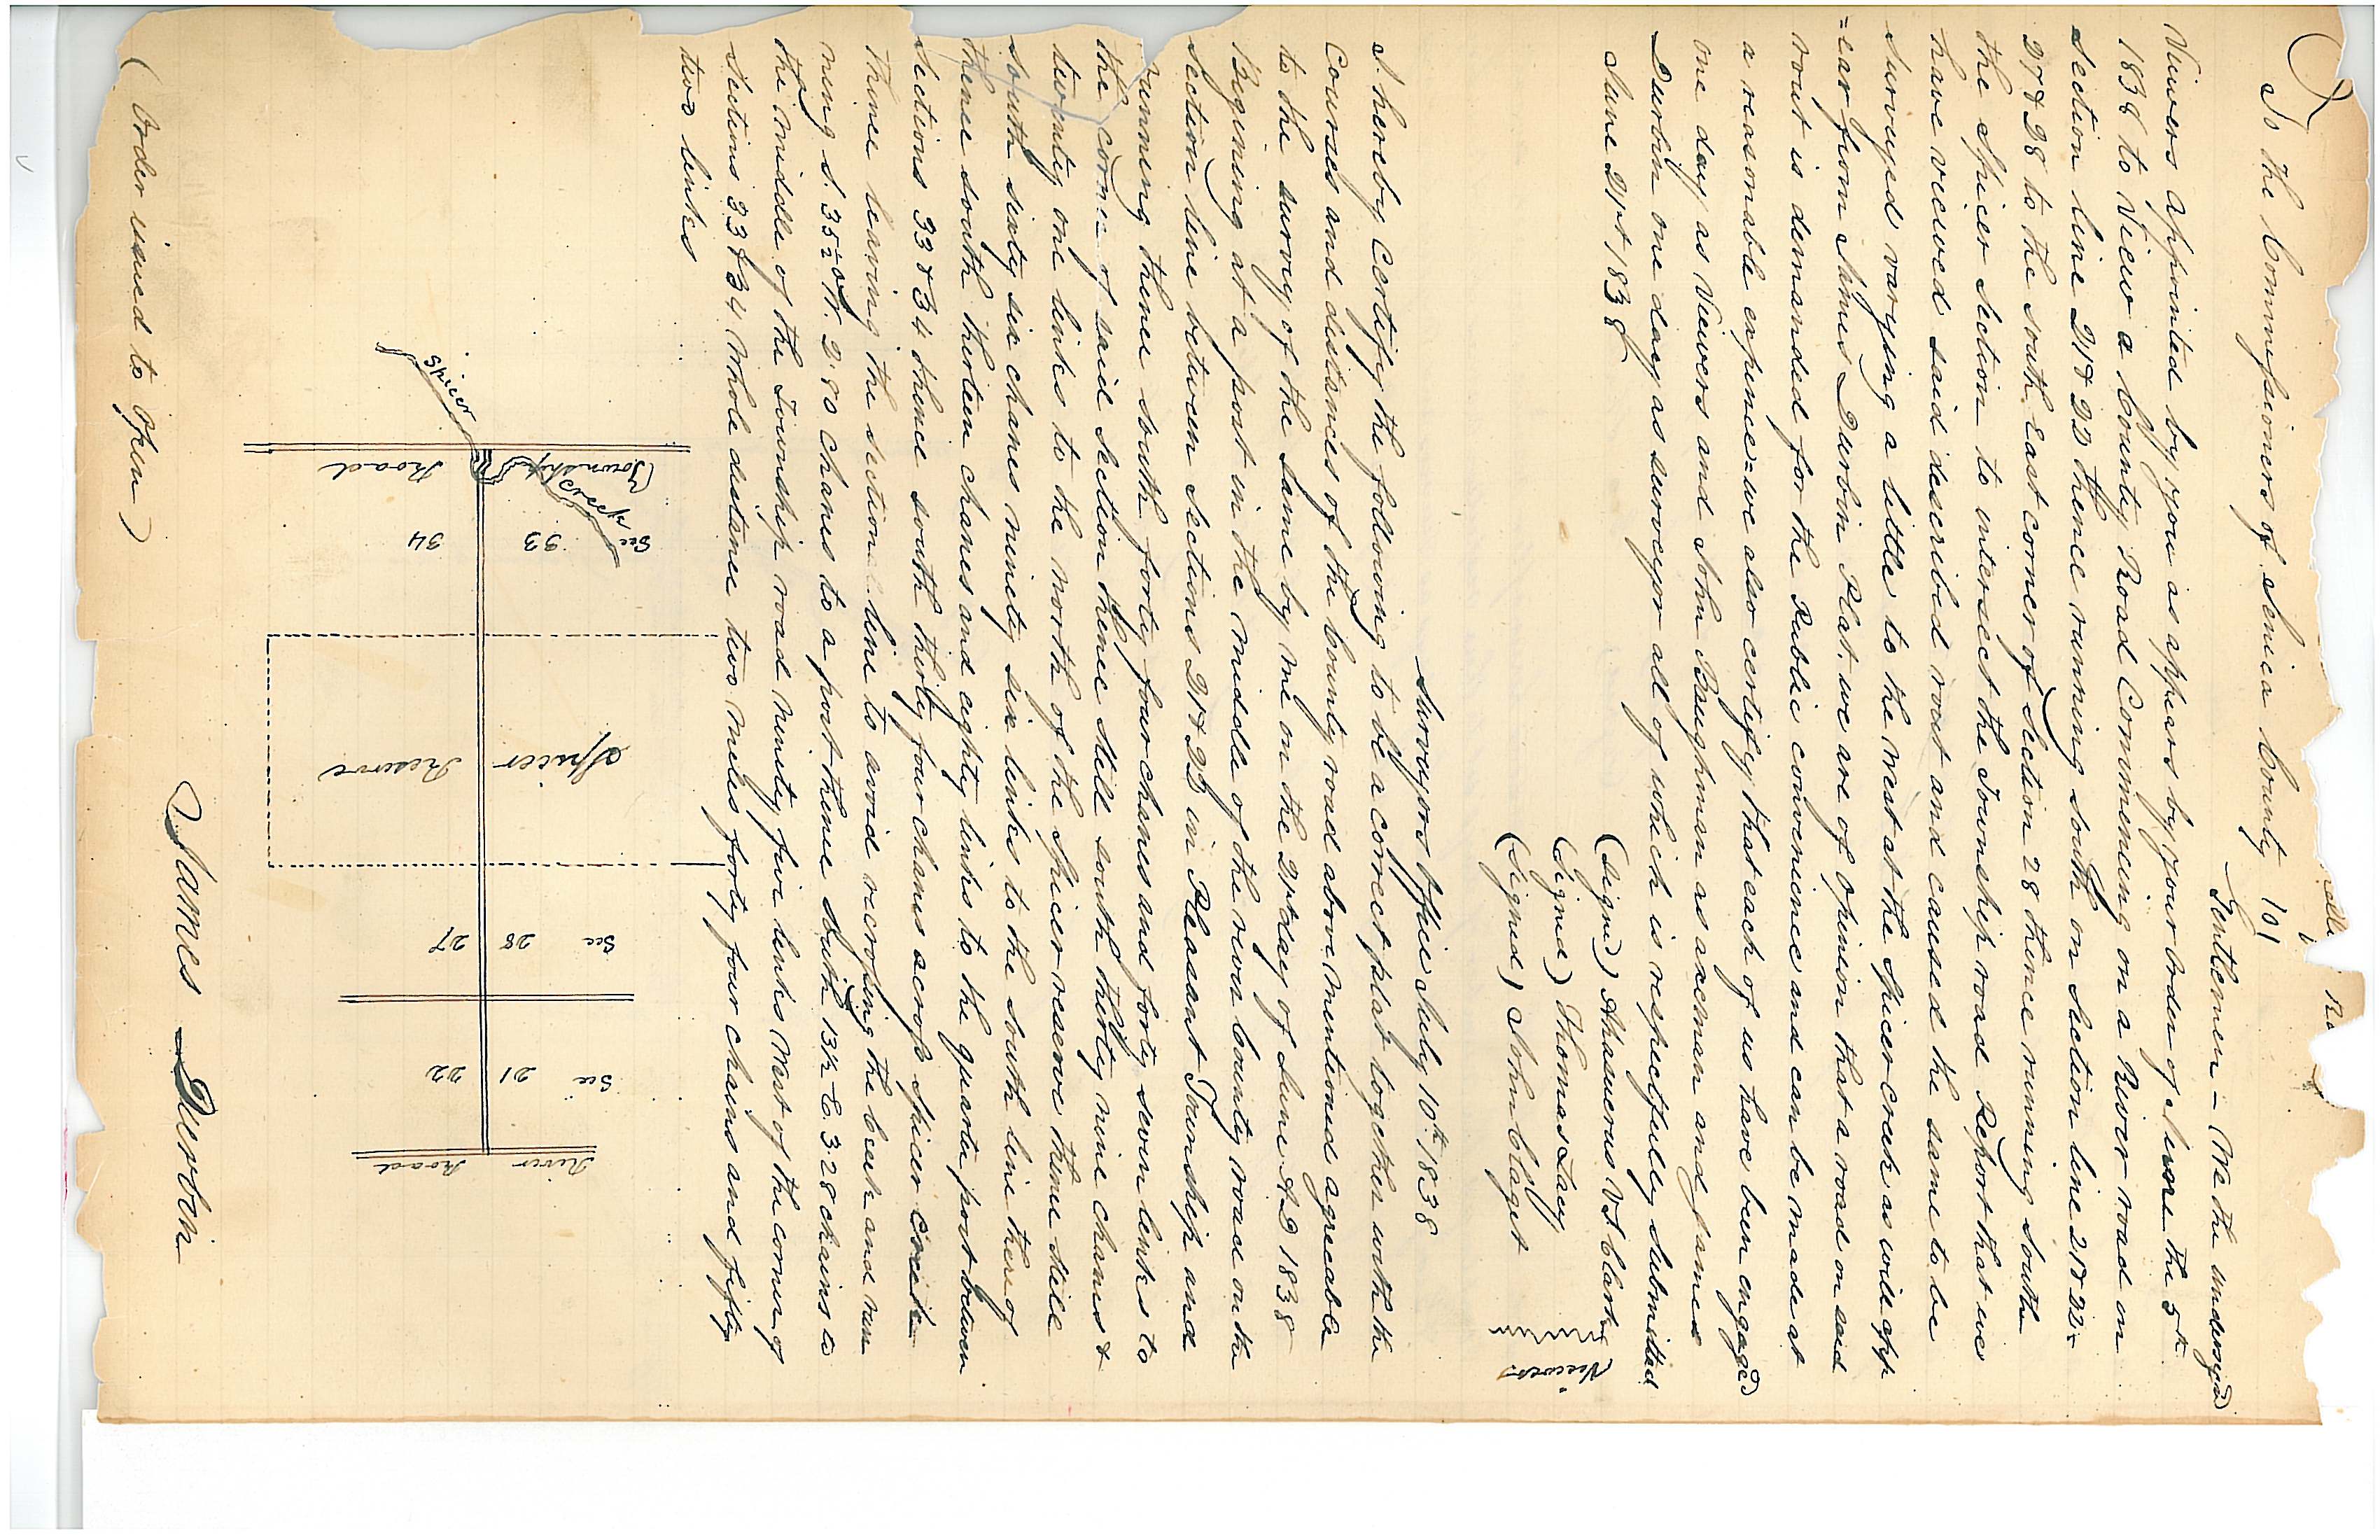 To the Commissioners of Seneca County 101
Gentlemen – We the undersigned
Viewers appointed by you as appears by your order of June the 5th
1838 to View a County Road Commencing on a River road on
Section line 21 & 22 thence running South on Section line 21 & 22 –
27 & 28 to the South East corner of Section 28 thence running South
the Spicer Section to intersect the Township road Report that we
have viewed said described rout and caused the same to be
surveyed varying a little to the West at the Spicer creek as will app
=ear from James Durbin Plat. we are of opinion that a road on said
rout is demanded for the Public convenience and can be made at
a reasonable expence = we also certify that each of us have been engaged
one day as Viewers and John Baughman as axeman and James
Durbin one day as surveyor all of which is respectfully submitted
June 21st 1838
(Signed) Ahasuerus W Clark
(Signed) Thomas Lacy
(Signed) John Claget
Viewers
Surveyors Office July 10th 1838
I hereby Certify the following to be a correct plat together with the
Courses and distances of the County road above mentioned agreeable
to the survey of the same by me on the 21st day of June AD 1838
Begining at a post in the middle of the river County road on the
Section line between Sections 21 & 22 in Pleasant Township and
running thence south forty four chanes and forty seven links to
the corner of said Section thence still south thirty nine chanes &
twenty one links to the north of the Spicer reserve thence still
south sixty six chanes ninety six links to the south line thereof
thence south thirteen chanes and eighty links to the quarter post between
Sections 33 & 34 thence south thirty four chanes across Spicer Creek
thence leaving the sectional line to avoid recrossing the creek and run
ning S. 35½° W. 2.80 Chanes to a post thence South 13½ E 3.28 chains to
the middle of the Township road ninety five links West of the corner of
Sections 33 & 34 Whole distance two miles forty four chains and fifty
two links
River Road
Sec 21 22
Sec 28 27
Spicer Reserve
Sec 33 34
Spicer Creek
Township Road
James Durbin
(Order issued to Open)